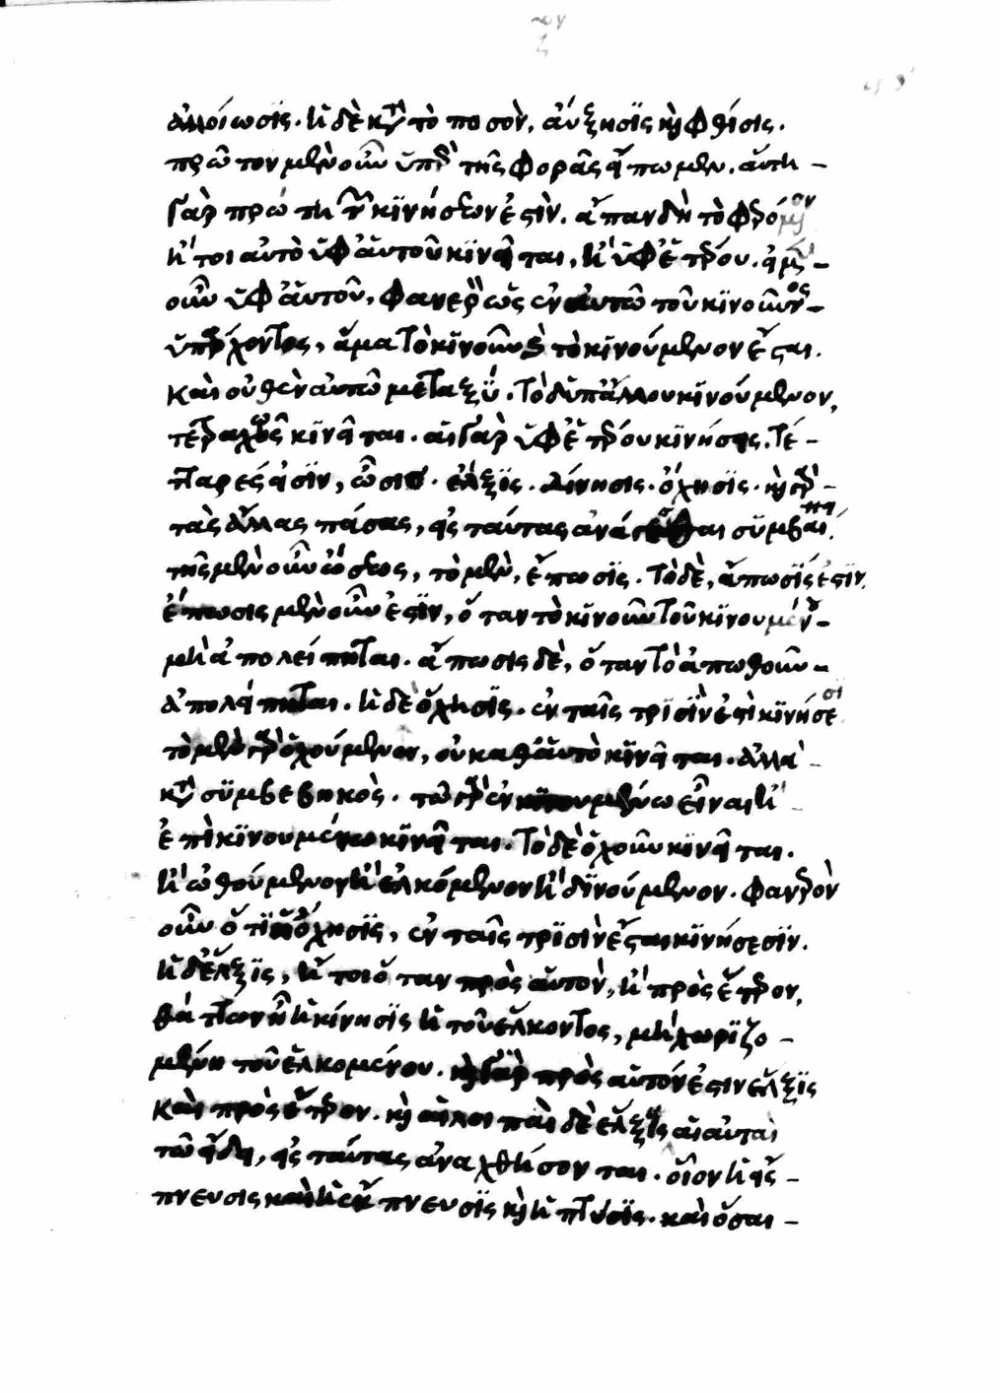 ἀλλοίωσις· ἡ δὲ κατὰ τὸ ποσὸν, αὔξησις καὶ φθίσις.
πρῶτον μὲν οὖν ὑπὲρ τῆς φορᾶς εἴπωμεν. αὕτη
γὰρ πρώτη τῶν κινήσεων ἐστίν. ἅπαν δὴ τὸ φερόμενον
ἤτοι αὐτὸ ὑφ' ἑαυτοῦ κινεῖται, ἢ ὑφ' ἑτέρου. εἰ μὲν
οὖν ὑφ' ἑαυτοῦ, φανερὸν ὡς ἐν αὐτῶ τοῦ κινοῦντος
ὑπάρχοντος, ἅμα τὸ κινοῦν καὶ τὸ κινούμενον ἔσται.
καὶ οὐθὲν αὐτῶ μεταξύ. τὸ δ' ὑπ' ἄλλου κινούμενον,
τετραχῶς κινεῖται. αἱ γὰρ ὑφ' ἑτέρου κινήσεις, τέ-
τταρες εἰσίν, ὦσις. ἕλξις. δίνησις. ὄχησις. καὶ γὰρ
τὰς ἄλλας πάσας, εἰς ταύτας ἀνάγεσθαι συμβαίνει.
τῆς μὲν οὖν ὤσεως, τὸ μὲν, ἔπωσις. τὸ δὲ, ἄπωσίς ἐστιν.
ἔπωσις μὲν οὖν ἐστιν, ὅταν τὸ κινοῦν τοῦ κινουμένου
μὴ ἀπολείπηται. ἄπωσις δὲ, ὅταν τὸ ἀπωθοῦν
ἀπολείπηται. ἡ δὲ ὄχησις. ἐν ταῖς τρισίν ἐστι κινήσεσι
τὸ μὲν γὰρ ὀχούμενον, οὐ καθ' ἑαυτὸ κινεῖται. ἀλλὰ
κατὰ συμβεβηκὸς. τῶ γὰρ ἐν κινουμένω εἶναι ἢ
ἐπὶ κινουμένω κινεῖται. τὸ δὲ ὀχοῦν κινεῖται.
ἢ ὠθούμενον ἢ ἑλκόμενον ἢ δινούμενον. φανερὸν
οὖν ὅτι ἡ ὄχησις, ἐν ταῖς τρισὶν ἔσται κινήσεσιν.
ἡ δ' ἕλξις, ἤτοι ὅταν πρὸς αὑτὸν, ἢ πρὸς ἕτερον,
θάττων ἦ ἡ κίνησις ἡ τοῦ ἕλκοντος, μὴ χωριζο-
μένη τοῦ ἑλκομένου. καὶ γὰρ πρὸς αὑτόν ἐστιν ἕλξις
καὶ πρὸς ἕτερον. καὶ αἱ λοιπαὶ δὲ ἕλξεις αἱ αὐταὶ
τῶ εἴδει, εἰς ταύτας ἀναχθήσονται. οἷον ἡ εἴς-
πνευσις καὶ ἡ ἔκπνευσις καὶ ἡ πτύσις. καὶ ὅσαι